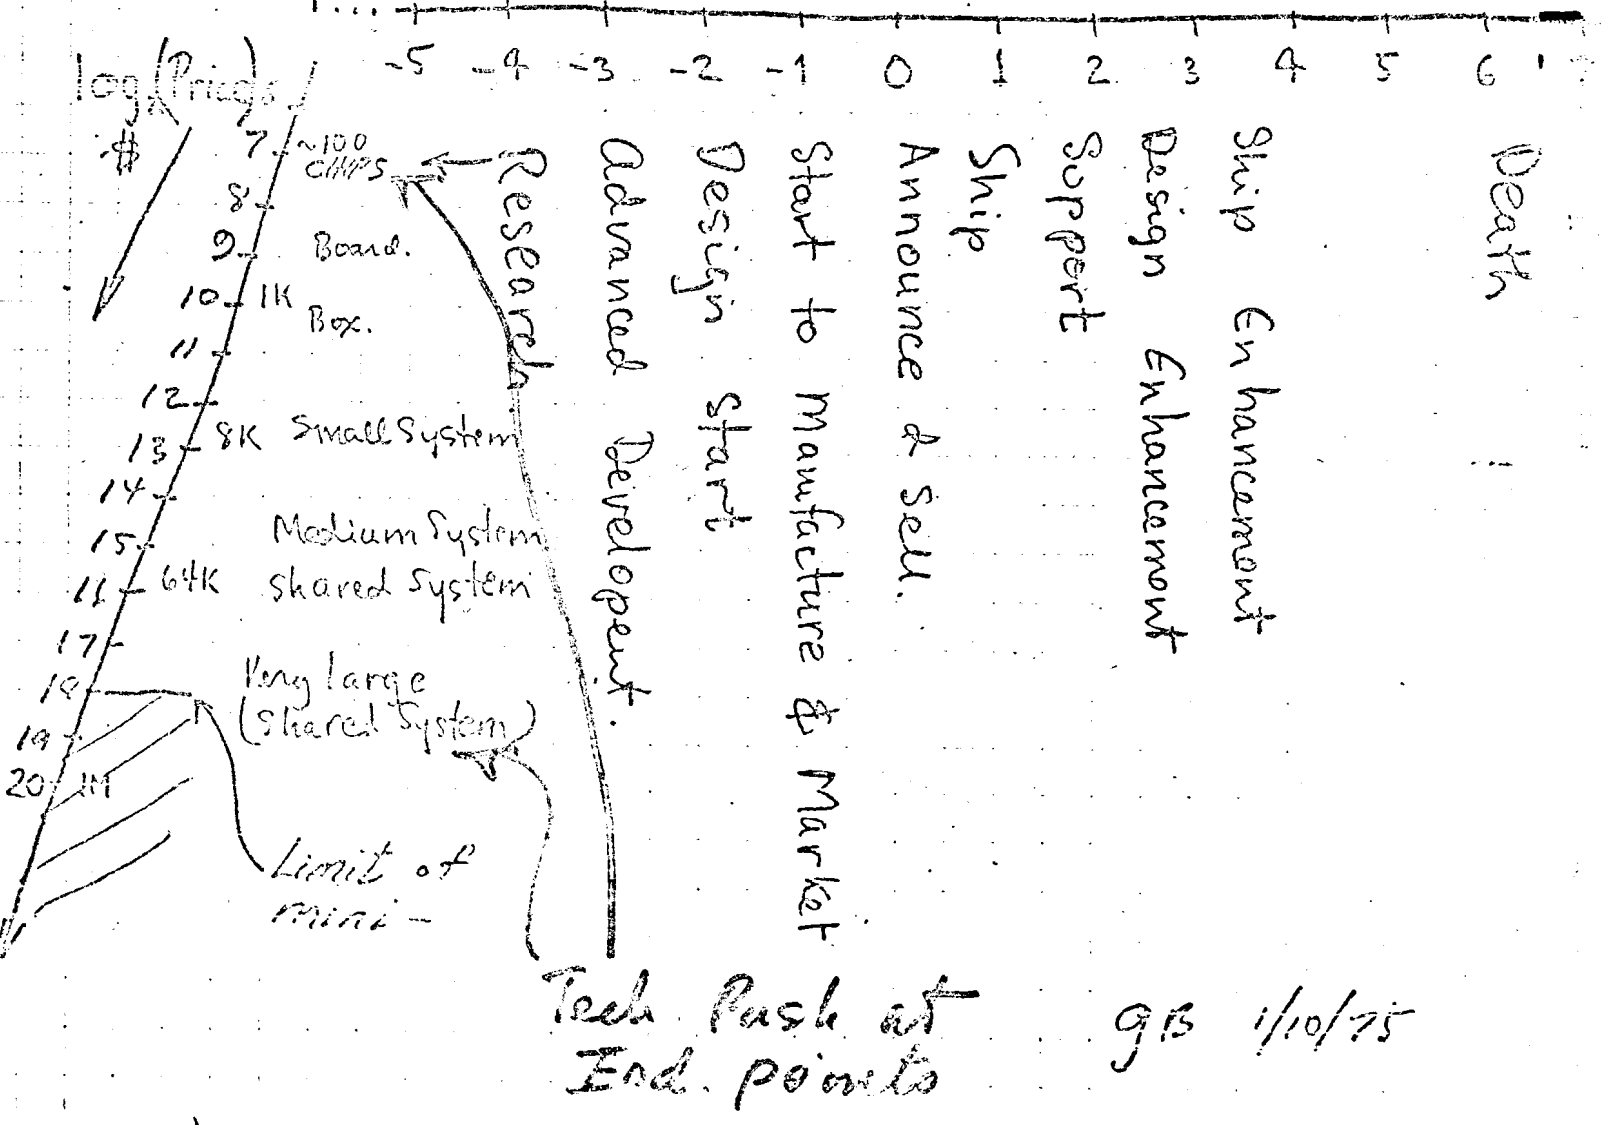 -5 -4 -3 -2 -1 0 1 2 3 4 5 6
log (Price)
$
7 ~100 CHIPS
8
9 Board.
10 1K Box.
11
12
13 8K Small System
14
15 Medium System
64K Shared System
17
18 Very large
(Shared System)
19
20 1M
Limit of
mini-
Research
Advanced Developent.
Design Start
Start to Manufacture & Market
Announce & Sell.
Ship
Support
Design Enhancement
Ship Enhancement
Death
Tech Push at
End. points
GB 1/10/75